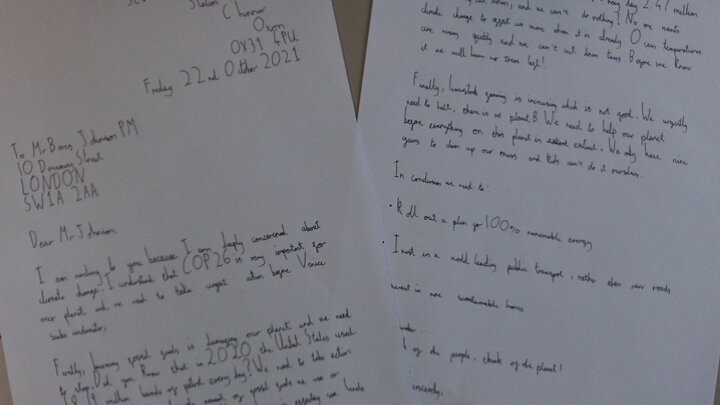 Station
Chinnor
Oxon
OX39 4PU
Friday 22nd October 2021
To Mr Boris Johnson PM
10 Downing Street
LONDON
SW1A 2AA
Dear Mr Johnson
I am writing to you because I am deeply concerned about
climate change. I understand that COP26 is very important for
our planet and we need to take urgent action before Venice
sinks underwater.
Firstly, burning fossil fuels is damaging our planet and we need
to stop. Did you know that in 2020 the United States used
million barrels of petrol every day? We need to take action
amount of fossil fuels we use or
day 2.47 million
and we can't do nothing! No one wants
climate change to affect us more when it is already Ocean temperatures
are rising quickly and we can't cut down trees Before we know
it we will have no trees left!
Finally, livestock farming is increasing which is not good. We urgently
need to halt, there is no planet B We need to help our planet
before everything on this planet is extinct. We only have nine
years to clean up our mess and kids can't do it ourselves.
In conclusion we need to:
• Roll out a plan for 100% renewable energy
• Invest in a world leading public transport, rather than new roads
in more sustainable homes
of the people, think of the planet!
sincerely,